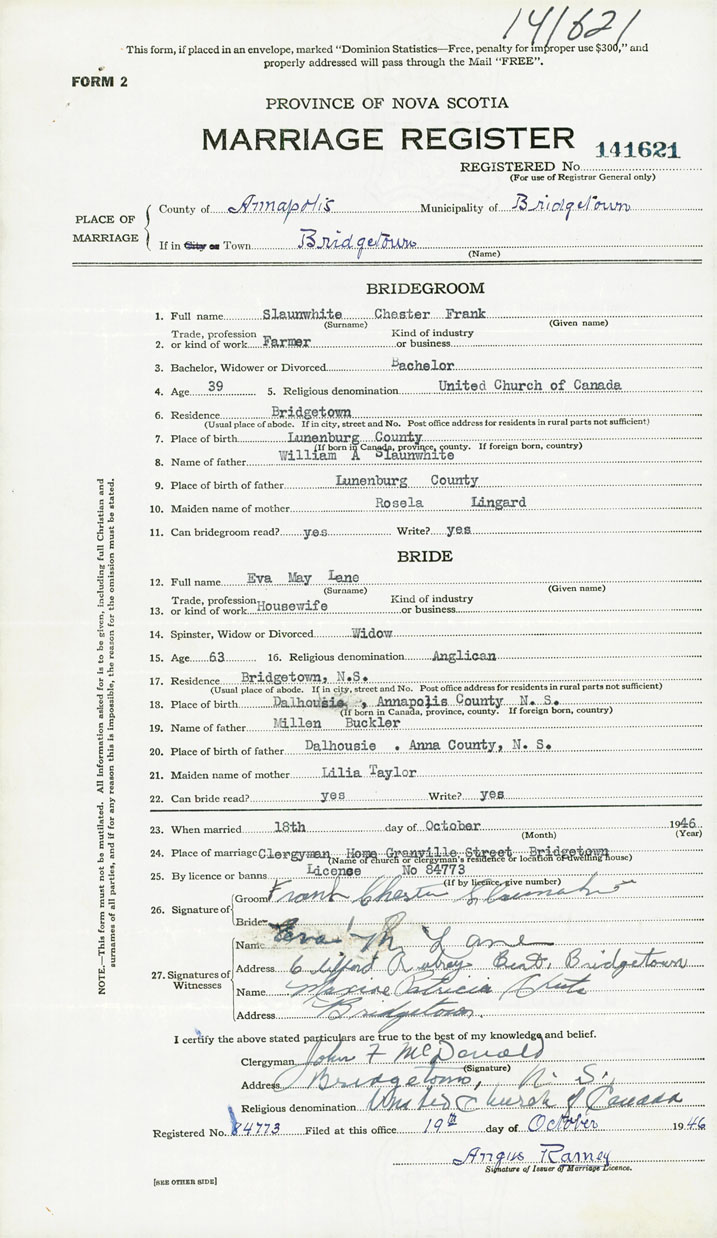 141621
This form, if placed in an envelope, marked “Dominion Statistics—Free, penalty for improper use $300,” and
properly addressed will pass through the Mail “FREE”.
FORM 2
PROVINCE OF NOVA SCOTIA
MARRIAGE REGISTER 141621
REGISTERED No.
(For use of Registrar General only)
PLACE OF MARRIAGE
County of Annapolis Municipality of Bridgetown
If in City or Town Bridgetown
(Name)
BRIDEGROOM
1. Full name Slaunwhite Chester Frank
(Surname) (Given name)
2. Trade, profession or kind of work Farmer Kind of industry or business
3. Bachelor, Widower or Divorced Bachelor
4. Age 39 5. Religious denomination United Church of Canada
6. Residence Bridgetown
(Usual place of abode. If in city, street and No. Post office address for residents in rural parts not sufficient)
7. Place of birth Lunenburg County
(If born in Canada, province, county. If foreign born, country)
8. Name of father William A Slaunwhite
9. Place of birth of father Lunenburg County
10. Maiden name of mother Rosela Lingard
11. Can bridegroom read? yes Write? yes
BRIDE
12. Full name Eva May Lane
(Surname) (Given name)
13. Trade, profession or kind of work Housewife Kind of industry or business
14. Spinster, Widow or Divorced Widow
15. Age 63 16. Religious denomination Anglican
17. Residence Bridgetown, N.S.
(Usual place of abode. If in city, street and No. Post office address for residents in rural parts not sufficient)
18. Place of birth Dalhousie , Annapolis County N. S.
(If born in Canada, province, county. If foreign born, country)
19. Name of father Millen Buckler
20. Place of birth of father Dalhousie . Anna County, N. S.
21. Maiden name of mother Lilia Taylor
22. Can bride read? yes Write? yes
23. When married 18th day of October 1946
(Month) (Year)
24. Place of marriage Clergyman Home Granville Street Bridgetown
(Name of church or clergyman's residence or location of dwelling house)
25. By licence or banns License No 84773
(If by licence, give number)
26. Signature of
Groom Frank Chester Slaunwhite
Bride
Eva M Lane
27. Signatures of Witnesses
Name
Address Clifford Aubrey Bent, Bridgetown
Name Maxine Patricia
Address Bridgetown.
I certify the above stated particulars are true to the best of my knowledge and belief.
Clergyman John F McDonald
(Signature)
Address Bridgetown, N. S.
Religious denomination United Church of Canada
Registered No. 84773 Filed at this office 19th day of October 1946
Angus Ramey
Signature of Issuer of Marriage Licence.
[SEE OTHER SIDE]
NOTE.—This form must not be mutilated. All Information asked for is to be given, including full Christian and
surnames of all parties, and if for any reason this is impossible, the reason for the omission must be stated.